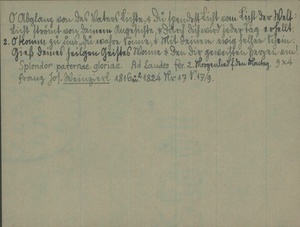 O Abglanz von des Vaters Lichte, & du spendest Licht vom Licht der Welt
Licht strömt von deinem Angesichte, & durch dich wird jeder Tag erhellt.
2. O komm zu uns du wahre Sonne, & Mit deinem ewig hellen Schein
Gieß deines heilgen Geistes Wonne & den dir geweihten Herzen ein
Splendor paternae gloriae. Ad Laudes fer. 2. Morgenlied f. den Montag. 9x4
Franz Jos. Weinzierl 1816 2A 1821 Nr 17 V 17/9.